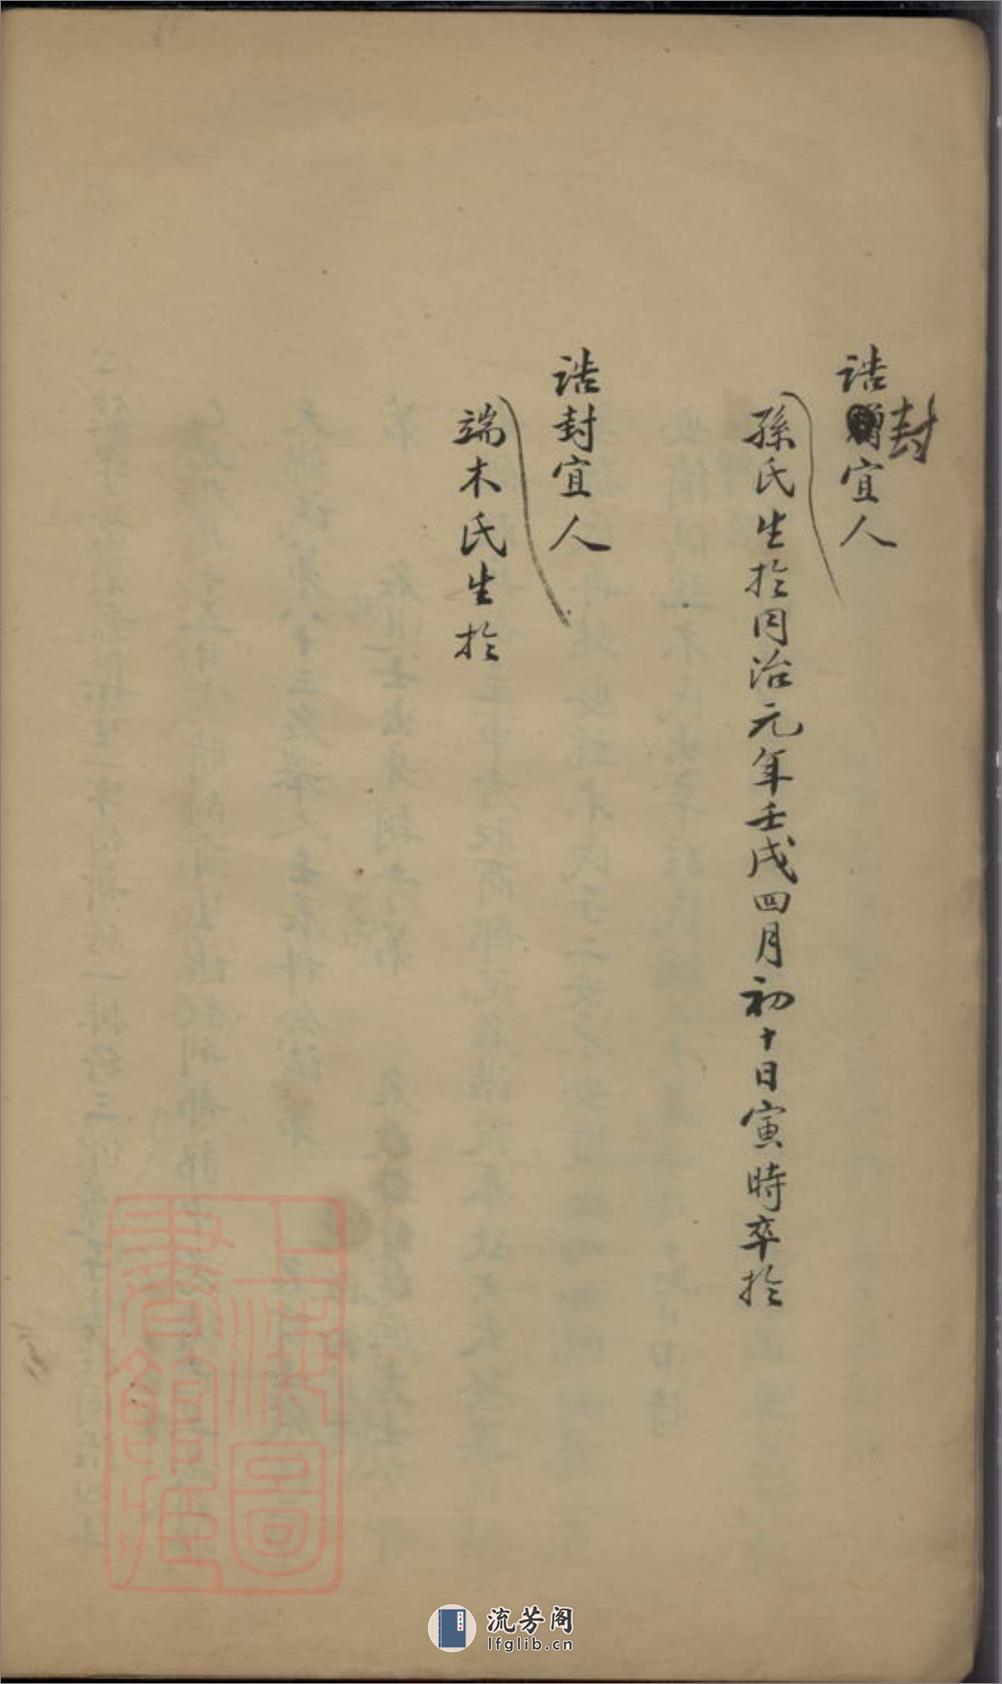 誥封宜人
孫氏生於同治元年壬戌四月初十日寅時卒於
誥封宜人
端木氏生於
上海圖書館藏
流芳阁
lfglib.cn